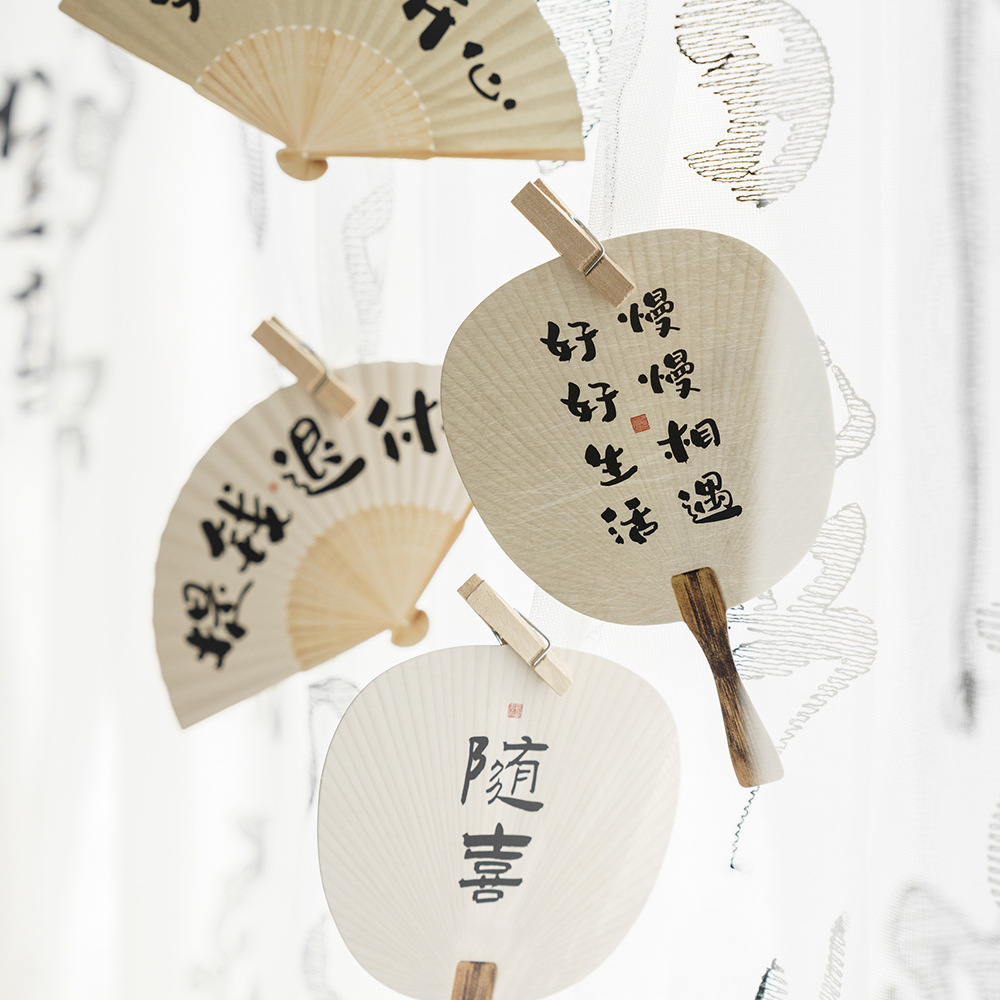 开心
慢慢相遇
好好生活
提钱退休
随喜